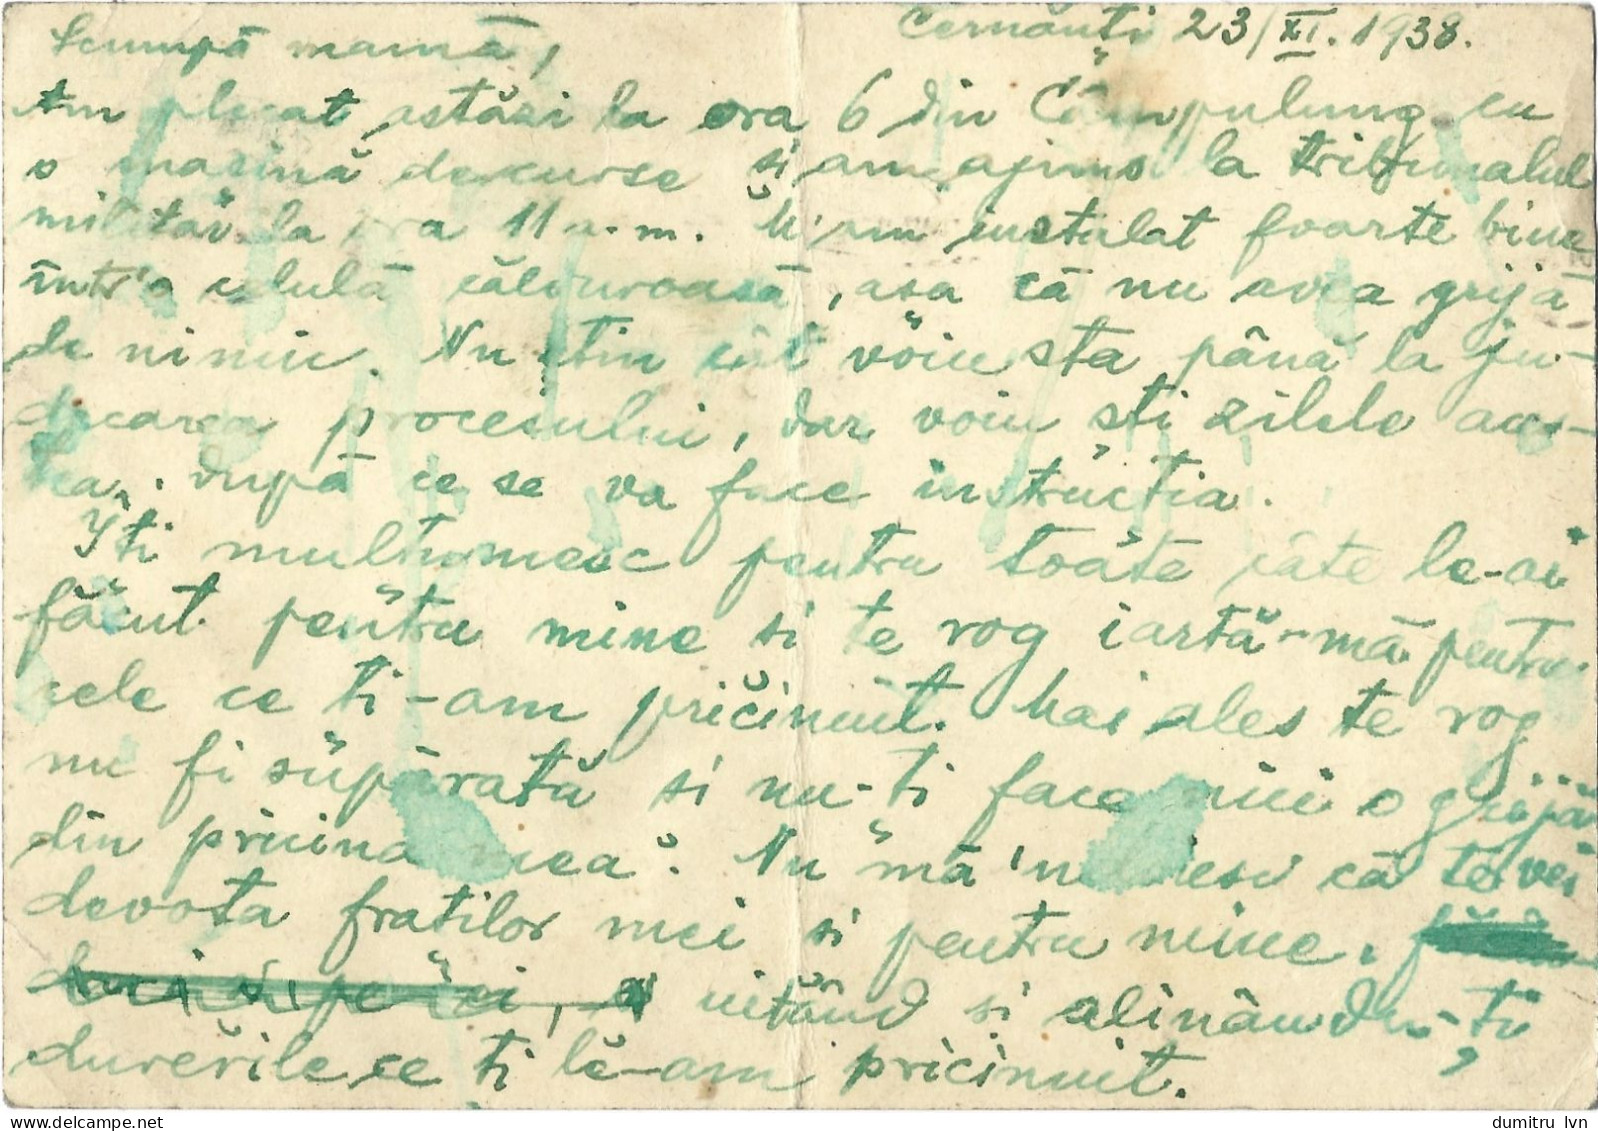 Cernăuți 23/XI. 1938.
Scumpă mamă,
Am plecat astăzi la ora 6 din Câmpulung cu
o mașină de curse si am ajuns la tribunalul
militar la ora 11 a.m. M'am instalat foarte bine
într'o celulă călduroasă, asa că nu avea grijă
de nimic. Nu știu cât voiu sta până la ju-
decarea procesului, dar voiu sti zilele aces-
tea, după ce se va face instrucția.
Îti multumesc pentru toate câte le-ai
făcut pentru mine si te rog iartă-mă pentru
cele ce ti-am pricinuit. Mai ales te rog
nu fi supărată si nu-ti face nici o grijă
din pricina mea. Nu mă 'ndoiesc că te vei
devota fratilor mei si pentru mine,
uitând si alinându-ți
durerile ce ti le-am pricinuit.
dumitru lvn